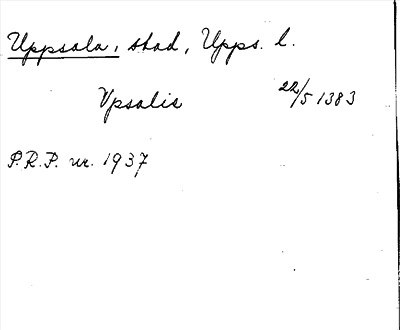 Uppsala, stad, Upps. l.
Vpsalis 22/5 1383
P.R.P. nr. 1937